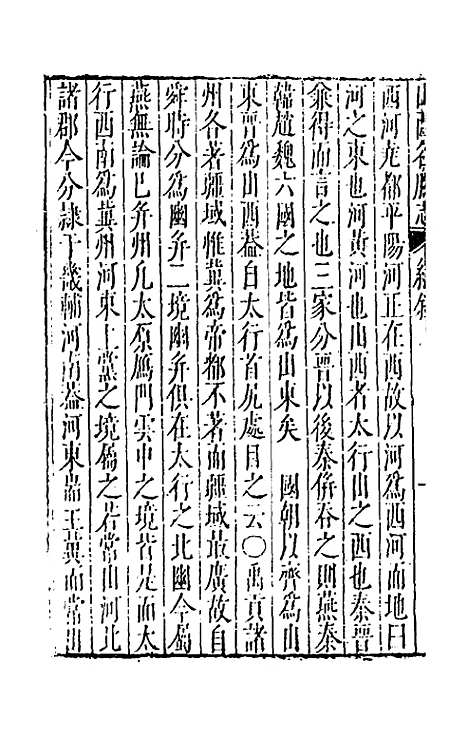 西河堯都平陽河正在西故以河爲西河而地曰
河之東也河黄河也山西者太行山之西也秦晉
兼得而言之也三家分晉以後秦併吞之則燕秦
韓趙魏六國之地皆爲山東矣 國朝以齊爲山
東晉爲山西葢自太行首尻處目之云○禹貢諸
州各著疆域惟冀爲帝都不著而疆域最廣故自
舜時分爲幽并二境幽并俱在太行之北幽今屬
燕無論已并州凢太原鴈門雲中之境皆是而太
行西南爲冀州河東上黨之境屬之若常山河北
諸郡今分隷于畿輔河南葢河東嵓王冀而常山